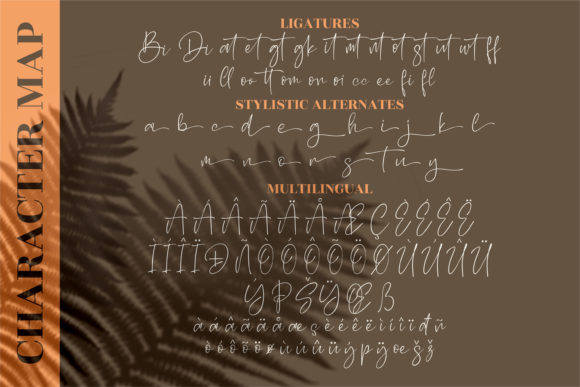 CHARACTER MAP
LIGATURES
Bi Di at et gt gk it mt nt ot st ut wt ff
ii ll oo tt om on oi cc ee fi fl
STYLISTIC ALTERNATES
a b c d e g h i j k l
m n o r s t u y
MULTILINGUAL
À Á Â Ã Ä Å Æ Ç È É Ê Ë
Ì Í Î Ï Đ Ñ Ò Ó Ô Õ Ö Ø Ù Ú Û Ü
Ý Þ Š Ÿ Œ ß
à á â ã ä å æ ç è é ê ë ì í î ï đ ñ
ò ó ô õ ö ø ù ú û ü ý þ ÿ œ š ž